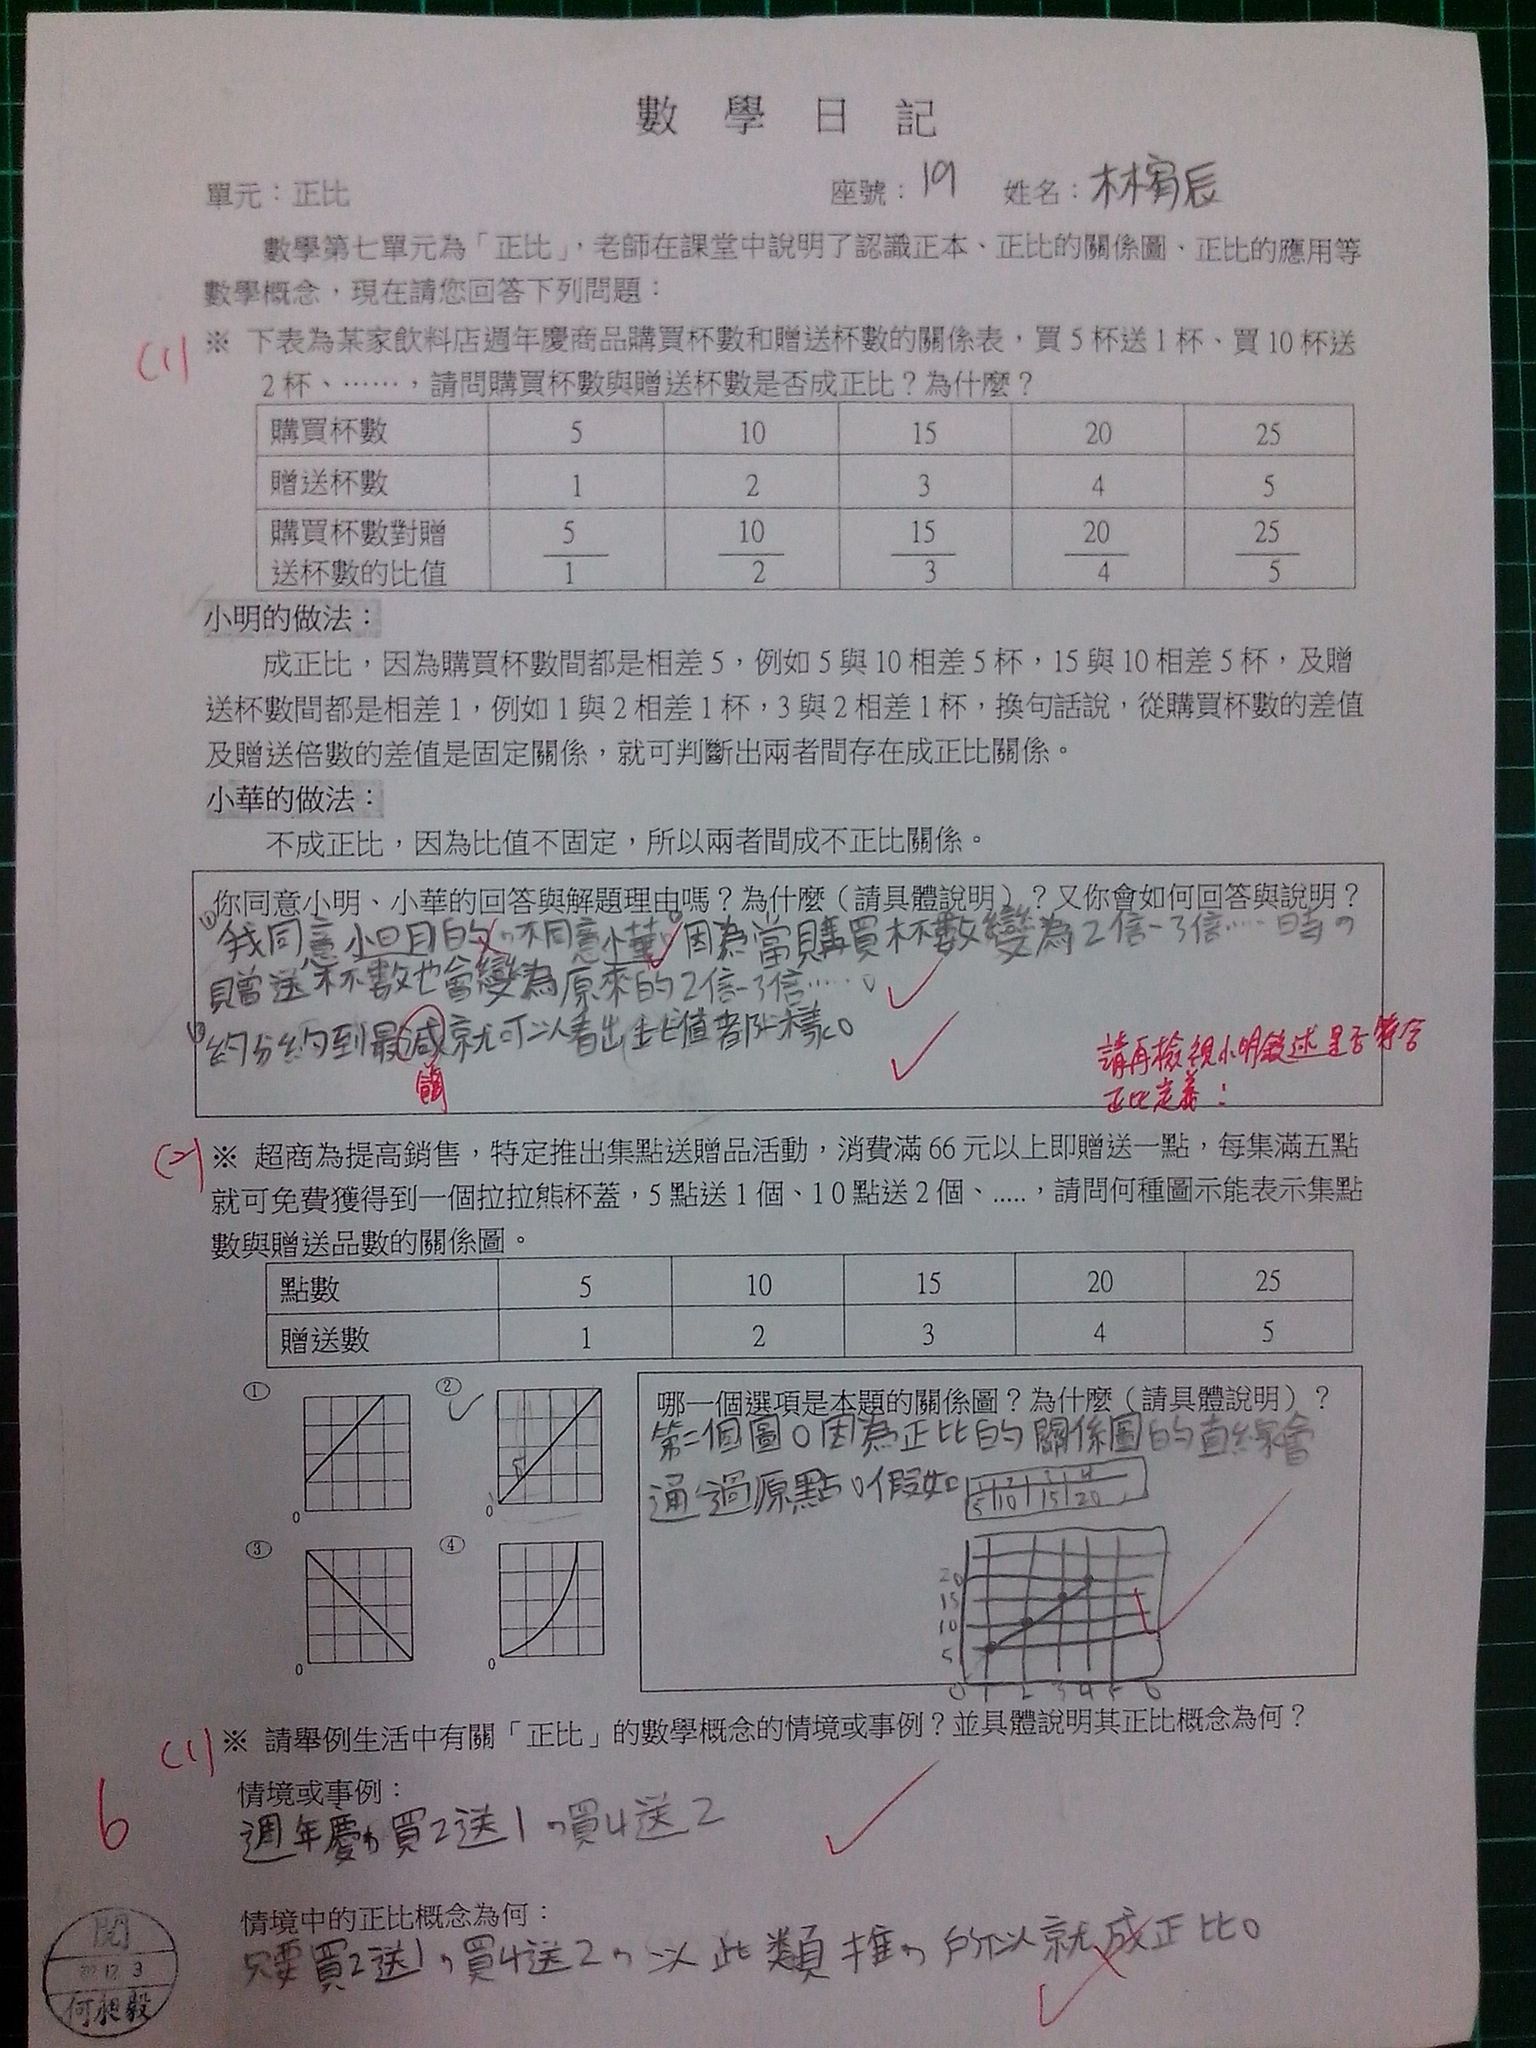 數學日記
單元：正比 座號：19 姓名：林宥辰
數學第七單元為「正比」，老師在課堂中說明了認識正本、正比的關係圖、正比的應用等
數學概念，現在請您回答下列問題：
(1) ※ 下表為某家飲料店週年慶商品購買杯數和贈送杯數的關係表，買5杯送1杯、買10杯送
2杯、……，請問購買杯數與贈送杯數是否成正比？為什麼？
購買杯數 5 10 15 20 25
贈送杯數 1 2 3 4 5
購買杯數對贈 5 10 15 20 25
送杯數的比值 1 2 3 4 5
小明的做法：
成正比，因為購買杯數間都是相差5，例如5與10相差5杯，15與10相差5杯，及贈
送杯數間都是相差1，例如1與2相差1杯，3與2相差1杯，換句話說，從購買杯數的差值
及贈送倍數的差值是固定關係，就可判斷出兩者間存在成正比關係。
小華的做法：
不成正比，因為比值不固定，所以兩者間成不正比關係。
你同意小明、小華的回答與解題理由嗎？為什麼（請具體說明）？又你會如何回答與說明？
我同意小明的，不同意小華。因為當購買杯數變為2倍、3倍……時，
贈送杯數也會變為原來的2倍、3倍……。
約分約到最減就可以看出比值都一樣。
簡
請再檢視小明敘述是否符合
正比定義！
(2) ※ 超商為提高銷售，特定推出集點送贈品活動，消費滿66元以上即贈送一點，每集滿五點
就可免費獲得到一個拉拉熊杯蓋，5點送1個、10點送2個、.....，請問何種圖示能表示集點
數與贈送品數的關係圖。
點數 5 10 15 20 25
贈送數 1 2 3 4 5
① ②
0 0
③ ④
0 0
哪一個選項是本題的關係圖？為什麼（請具體說明）？
第二個圖。因為正比的關係圖的直線會
通過原點。假如
1 2 3 4
5 10 15 20
20
15
10
5
0 1 2 3 4 5 6
(1) ※ 請舉例生活中有關「正比」的數學概念的情境或事例？並具體說明其正比概念為何？
6
情境或事例：
週年慶，買2送1，買4送2
情境中的正比概念為何：
只要買2送1，買4送2，以此類推，所以就成正比。
閱
12 3
何昶毅